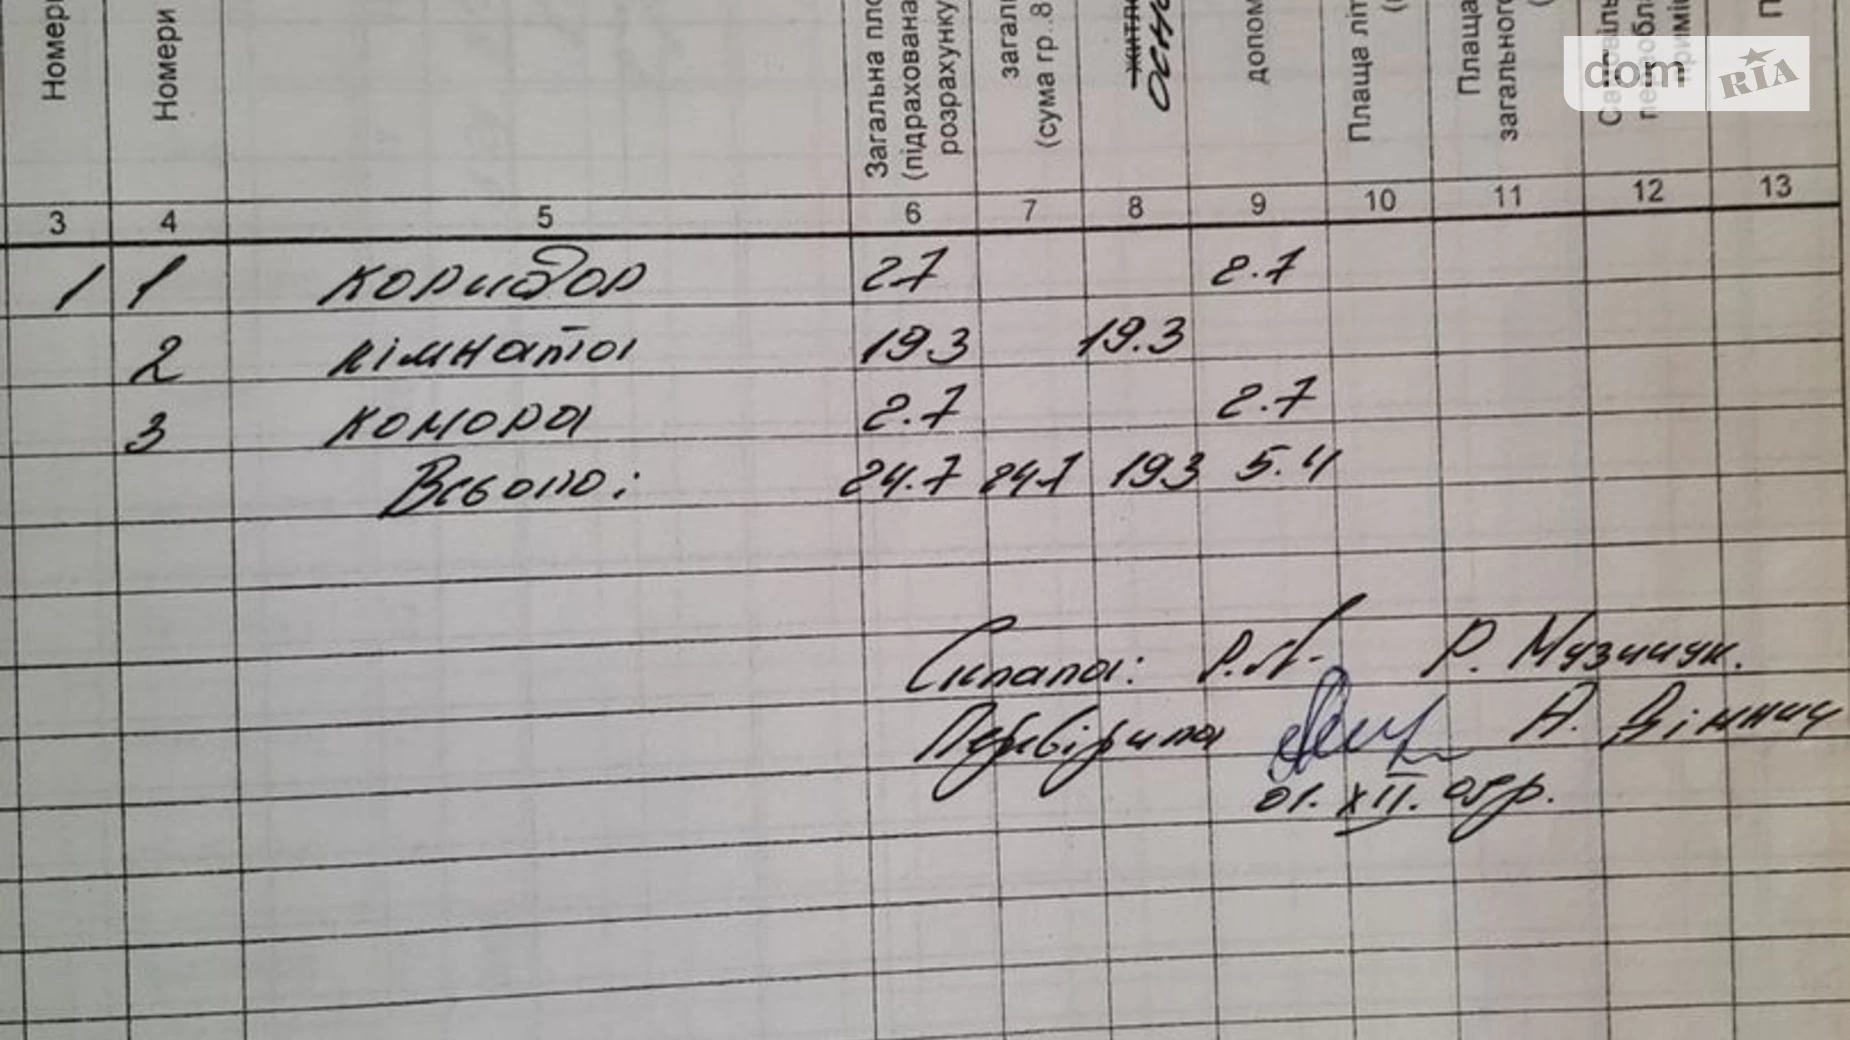 Номери
Номери
Загальна пло
(підрахована
розрахунку
загаль
(сума гр.8
житло
осно
допом
Площа літ
Площа
загального
dom RIA
3 4 5 6 7 8 9 10 11 12 13
1 1 коридор 2.7 2.7
2 кімната 19.3 19.3
3 комора 2.7 2.7
Всього: 24.7 24.7 19.3 5.4
Склала: Р. Музичук.
Перевірила А. Дімнич
01. XII. 05р.